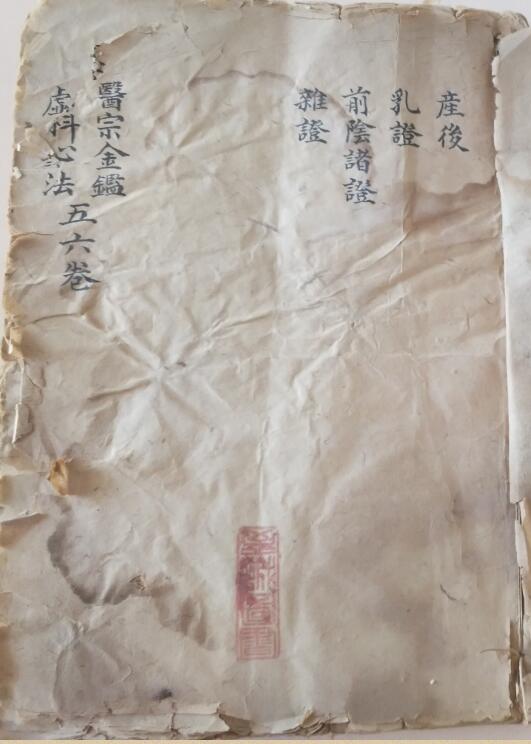 産後
乳證
前陰諸證
雜證
醫宗金鑑
虛科心法
五六卷